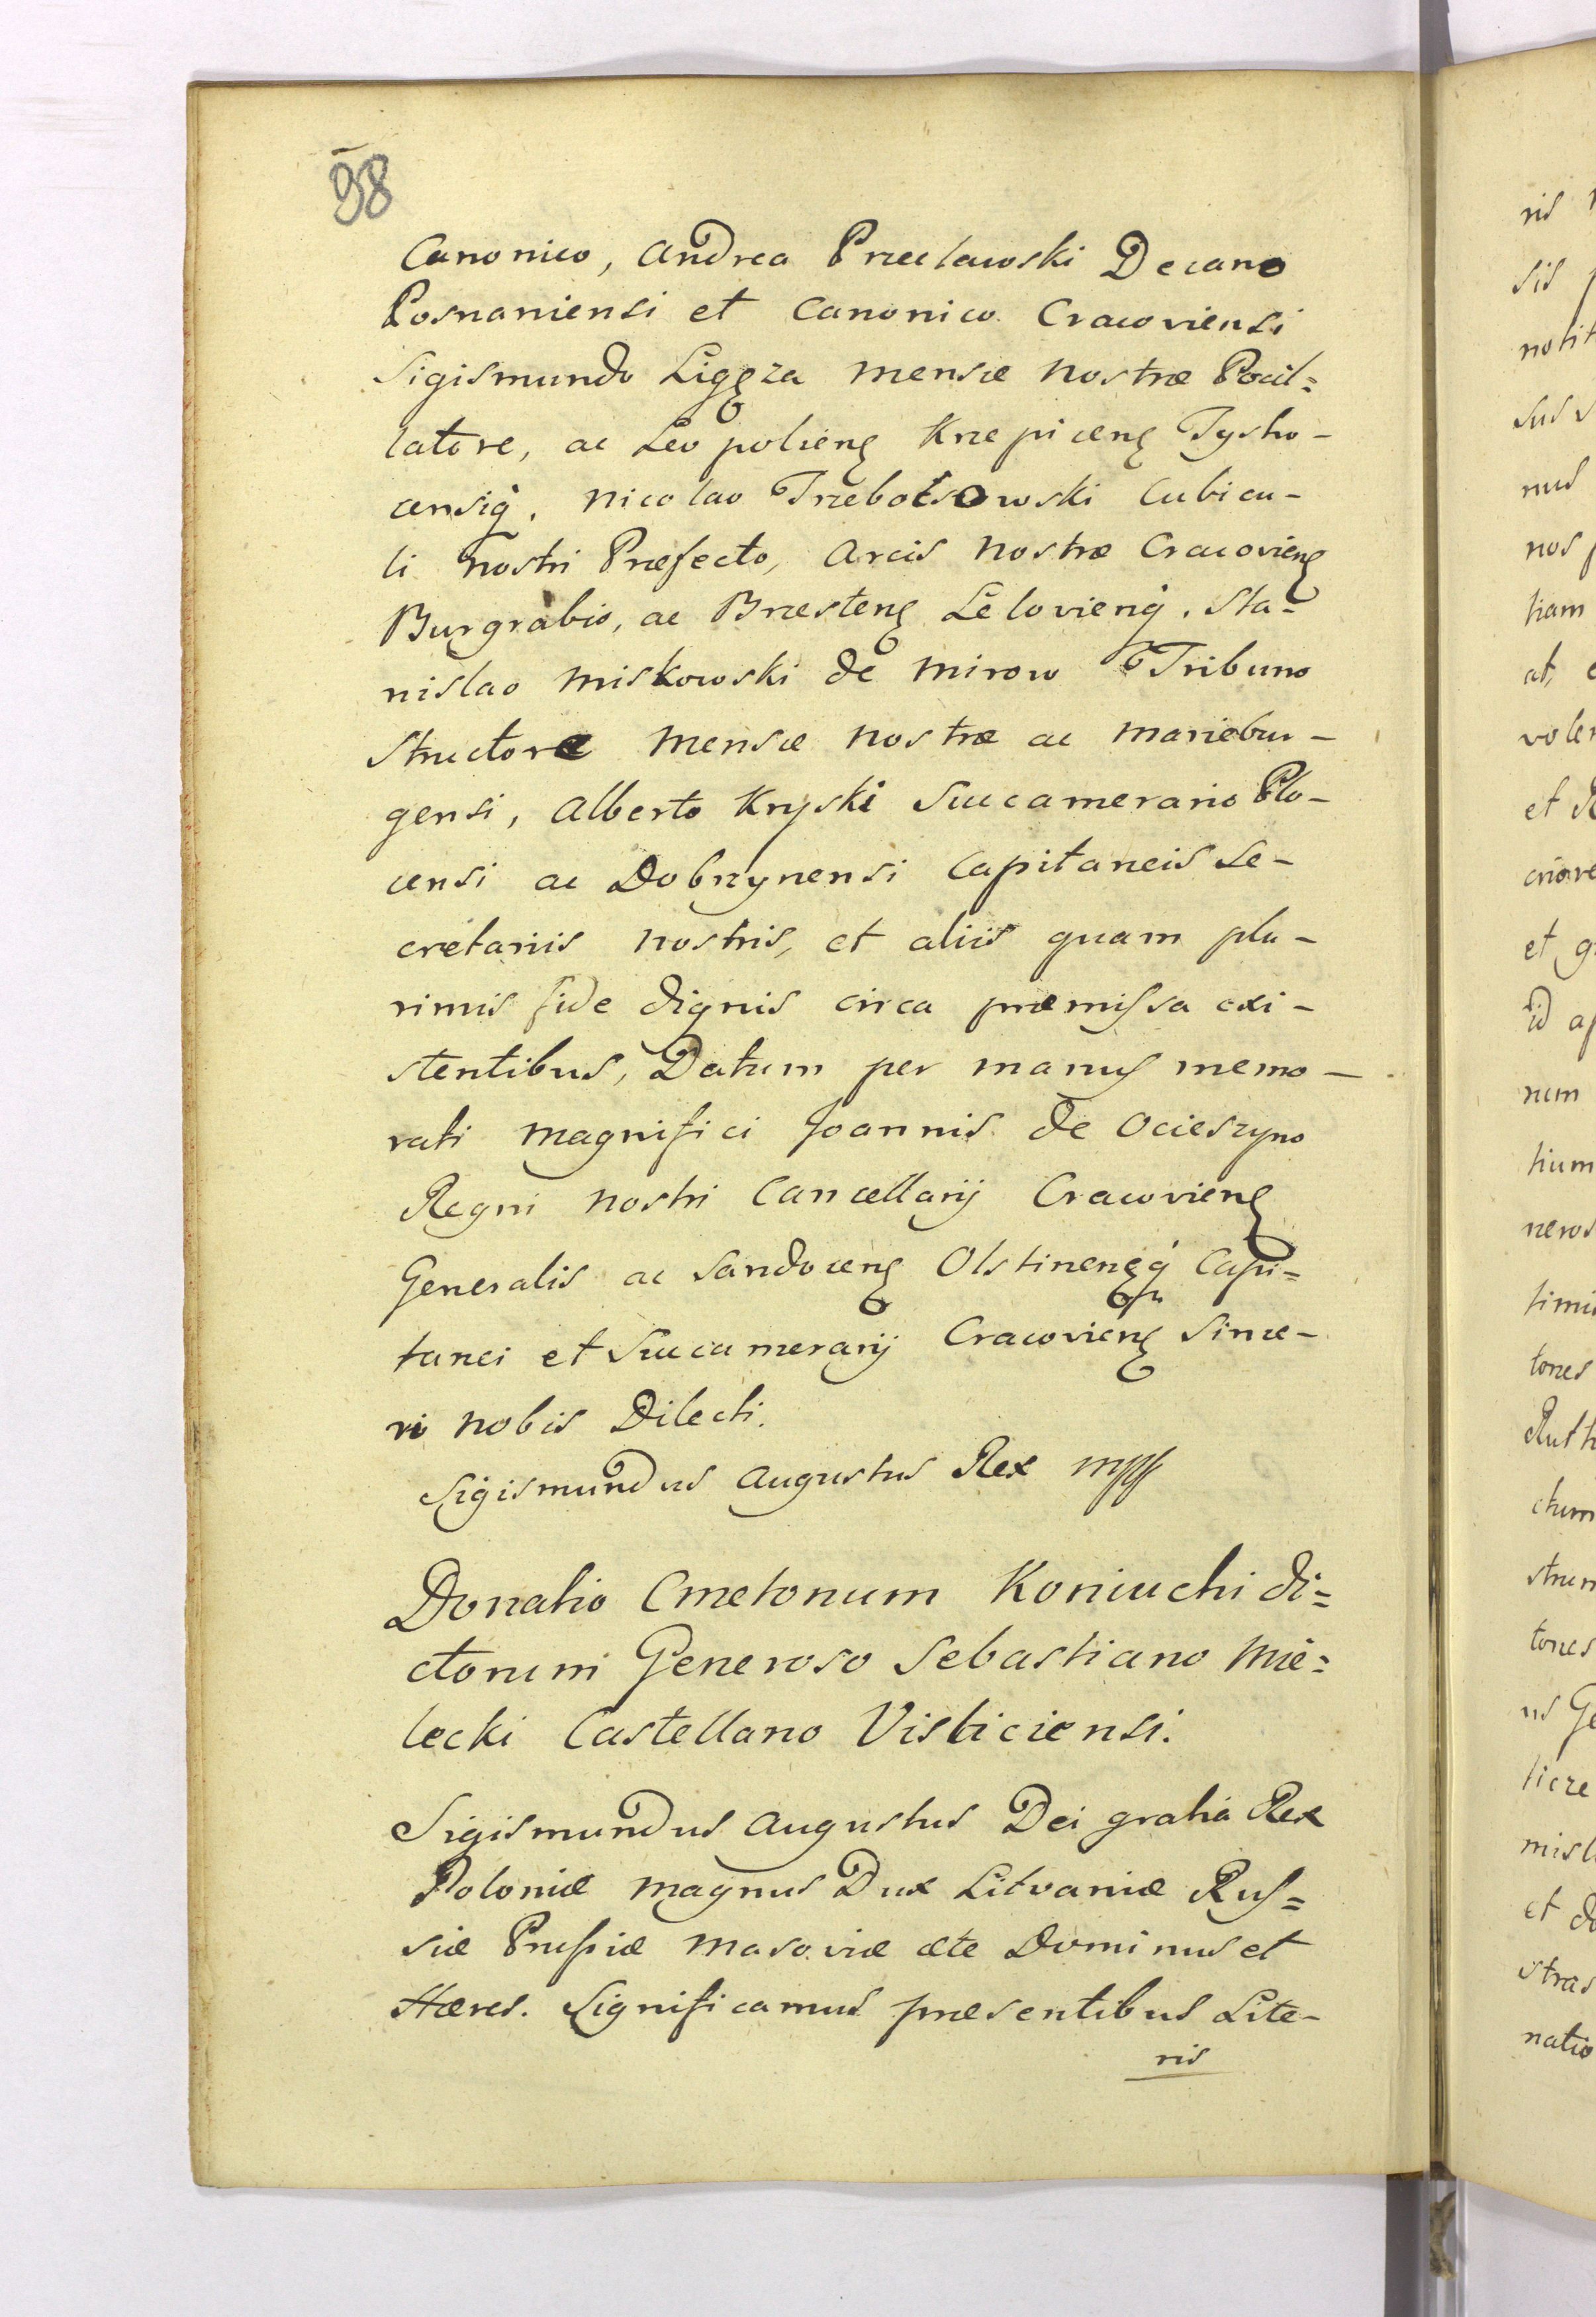 98
Canonico, Andrea Przeclawski Decano
Posnaniensi et Canonico Cracoviensi
Sigismundo Ligęza mensæ nostræ Pocil=
latore, ac Leopolieng Krzepiceng Tysho-
censiq. Nicolao Trzebotsowski Cubicu-
li nostri Præfecto, Arcis nostræ Cracovieng
Burgrabio, ac Brzesteng Lelovienq. Sta=
nislao Miskowski de Mirow Tribuno
Structore mensæ nostræ ac Mariebur-
gensi, Alberto Kryski Succamerario Plo-
censi ac Dobrzynensi Capitaneis Se-
cretariis nostris, et aliis quam plu-
rimis fide dignis circa præmissa exi-
stentibus, Datum per manus memo-
rati magnifici Joannis de Ocieszyno
Regni nostri Cancellarij Cracovieng
Generalis ac Sandoceng Olstinengq Capi=
tanei et Succamerarij Cracovieng Since-
ri nobis Dilecti.
Sigismundus Augustus Rex mpp
Donatio Cmetonum Koniuchi di=
ctorum Generoso Sebastiano Mie=
lecki Castellano Visliciensi.
Sigismundus Augustus Dei gratia Rex
Poloniæ Magnus Dux Litvaniæ Rus=
siæ Prussiæ Masoviæ æte Dominus et
Hæres. Significamus præsentibus Lite-
ris
ris
sis
notit
sus
nus
nos
tiam
at,
voler
et
criore
et
id
num
tium
neros
timi
tones
Ruth
ctum
strum
tones
us Ge
ticze
misl
et do
stras
natio